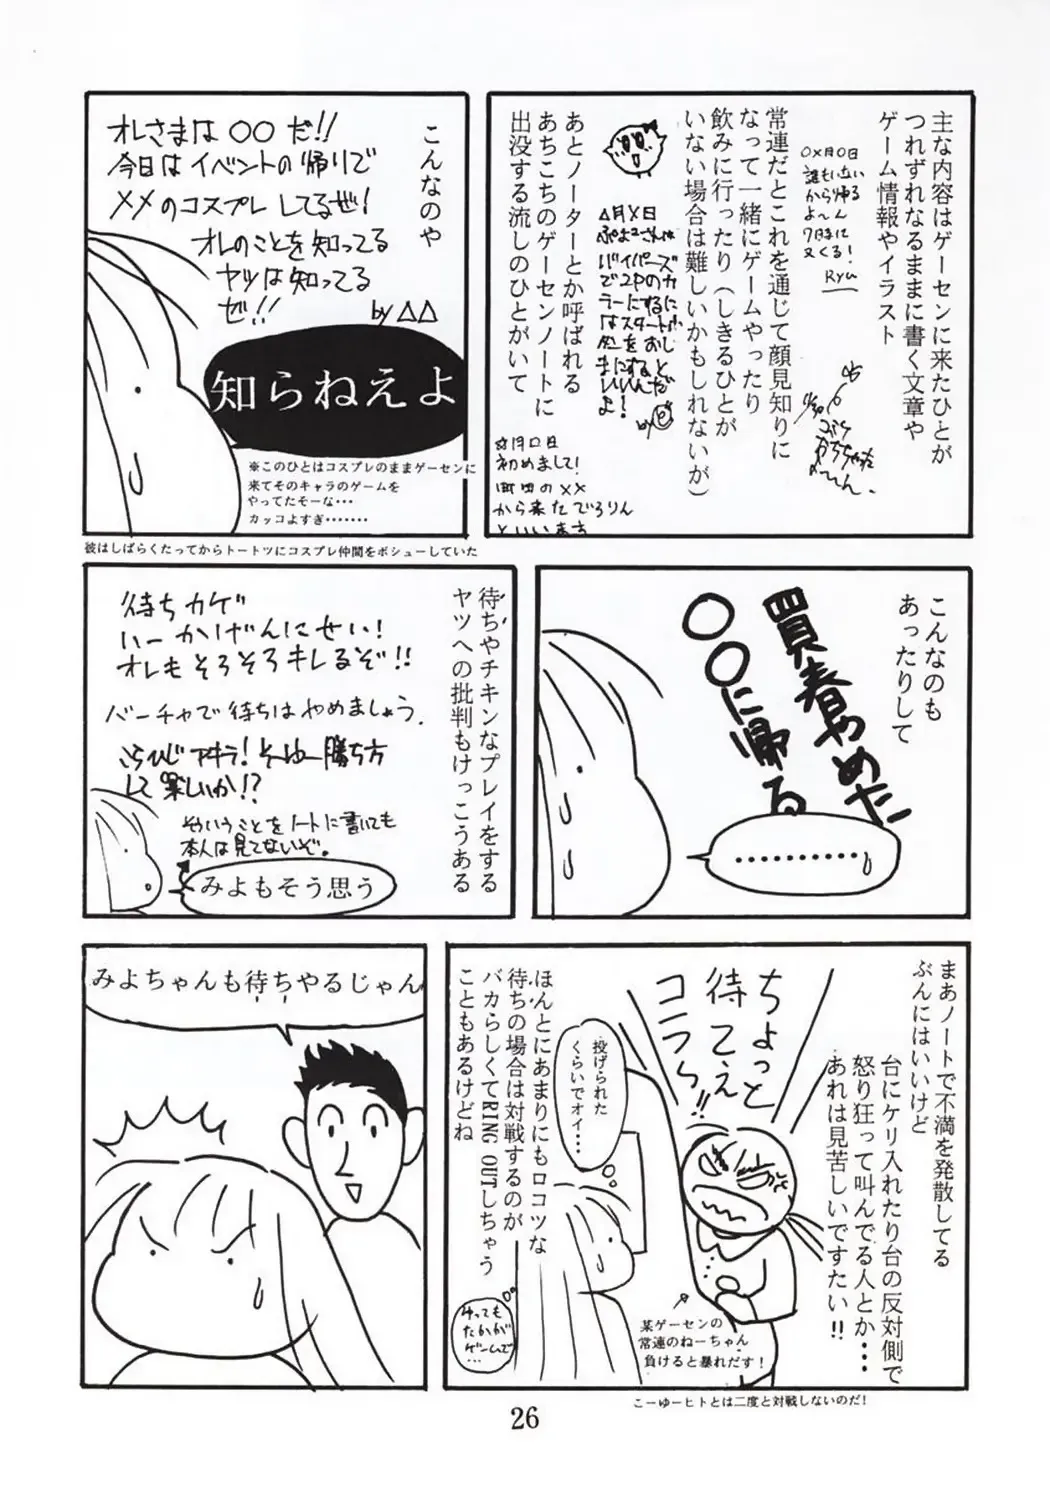 主な内容はゲーセンに来たひとが
つれずれなるままに書く文章や
ゲーム情報やイラスト
○×月○日
誰もいない
から帰る
よ〜ん
7時に
又くる!
Ryu
常連だとこれを通じて顔見知りに
なって一緒にゲームやったり
飲みに行ったり(しきるひとが
いない場合は難しいかもしれないが)
△月×日
あとノーターとか呼ばれる
あちこちのゲーセンノートに
出没する流しのひとがいて
月□日
初めまして!
町田の××
から来たでろりん
といいます
こんなのや
オレさまは○○だ!!
今日はイベントの帰りで
××のコスプレしてるぜ!
オレのことを知ってる
ヤツは知ってる
ぜ!!
by △△
知らねえよ
※このひとはコスプレのままゲーセンに
来てそのキャラのゲームを
やってたそーな・・・
カッコよすぎ・・・・・・・
彼はしばらくたってからトートツにコスプレ仲間をボシューしていた
こんなのも
あったりして
買春やめた
○○に帰る
・・・・・・・・・・
待ちやチキンなプレイをする
ヤツへの批判もけっこうある
待ちカゲ
いーかげんにせい!
オレもそろそろキレるぞ!!
バーチャで待ちはやめましょう.
こらひじアキラ!そゆー勝ち方
して楽しいか!?
そういうことをノートに書いても
本人は見てないぞ。
みよもそう思う
まあノートで不満を発散してる
ぶんにはいいけど
台にケリ入れたり台の反対側で
怒り狂って叫んでる人とか・・・
あれは見苦しいですたい!!
ちょっと
待てぇ
コラら!!
某ゲーセンの
常連のねーちゃん
負けると暴れだす!
投げられた
くらいでオイ・・・
ほんとにあまりにもロコツな
待ちの場合は対戦するのが
バカらしくてRING OUTしちゃう
こともあるけどね
ゆっても
たかが
ゲームで
…
こーゆーヒトとは二度と対戦しないのだ!
みよちゃんも待ちやるじゃん
26